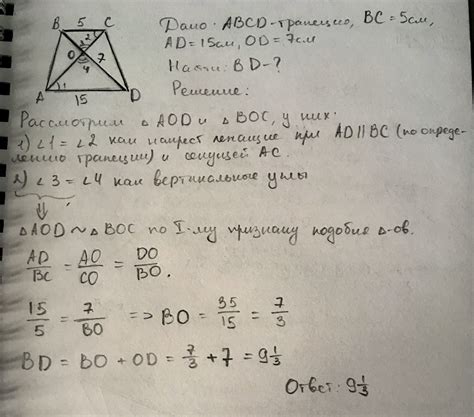 B 5 C
Дано: ABCD-трапеция, BC = 5см,
AD = 15см, OD = 7см
2
3
O 7
4
Найти: BD-?
A 1 D
15
Решение:
Рассмотрим △ AOD и △ BOC, у них:
1) ∠1 = ∠2 как накрест лежащие при AD || BC (по опреде-
лению трапеции) и секущей AC.
2) ∠3 = ∠4 как вертикальные углы
⇓
△AOD ~ △BOC по I-му признаку подобия △-ов.
AD/BC = AO/CO = DO/BO.
15/5 = 7/BO => BO = 35/15 = 7/3
BD = BO + OD = 7/3 + 7 = 9 1/3
Ответ: 9 1/3